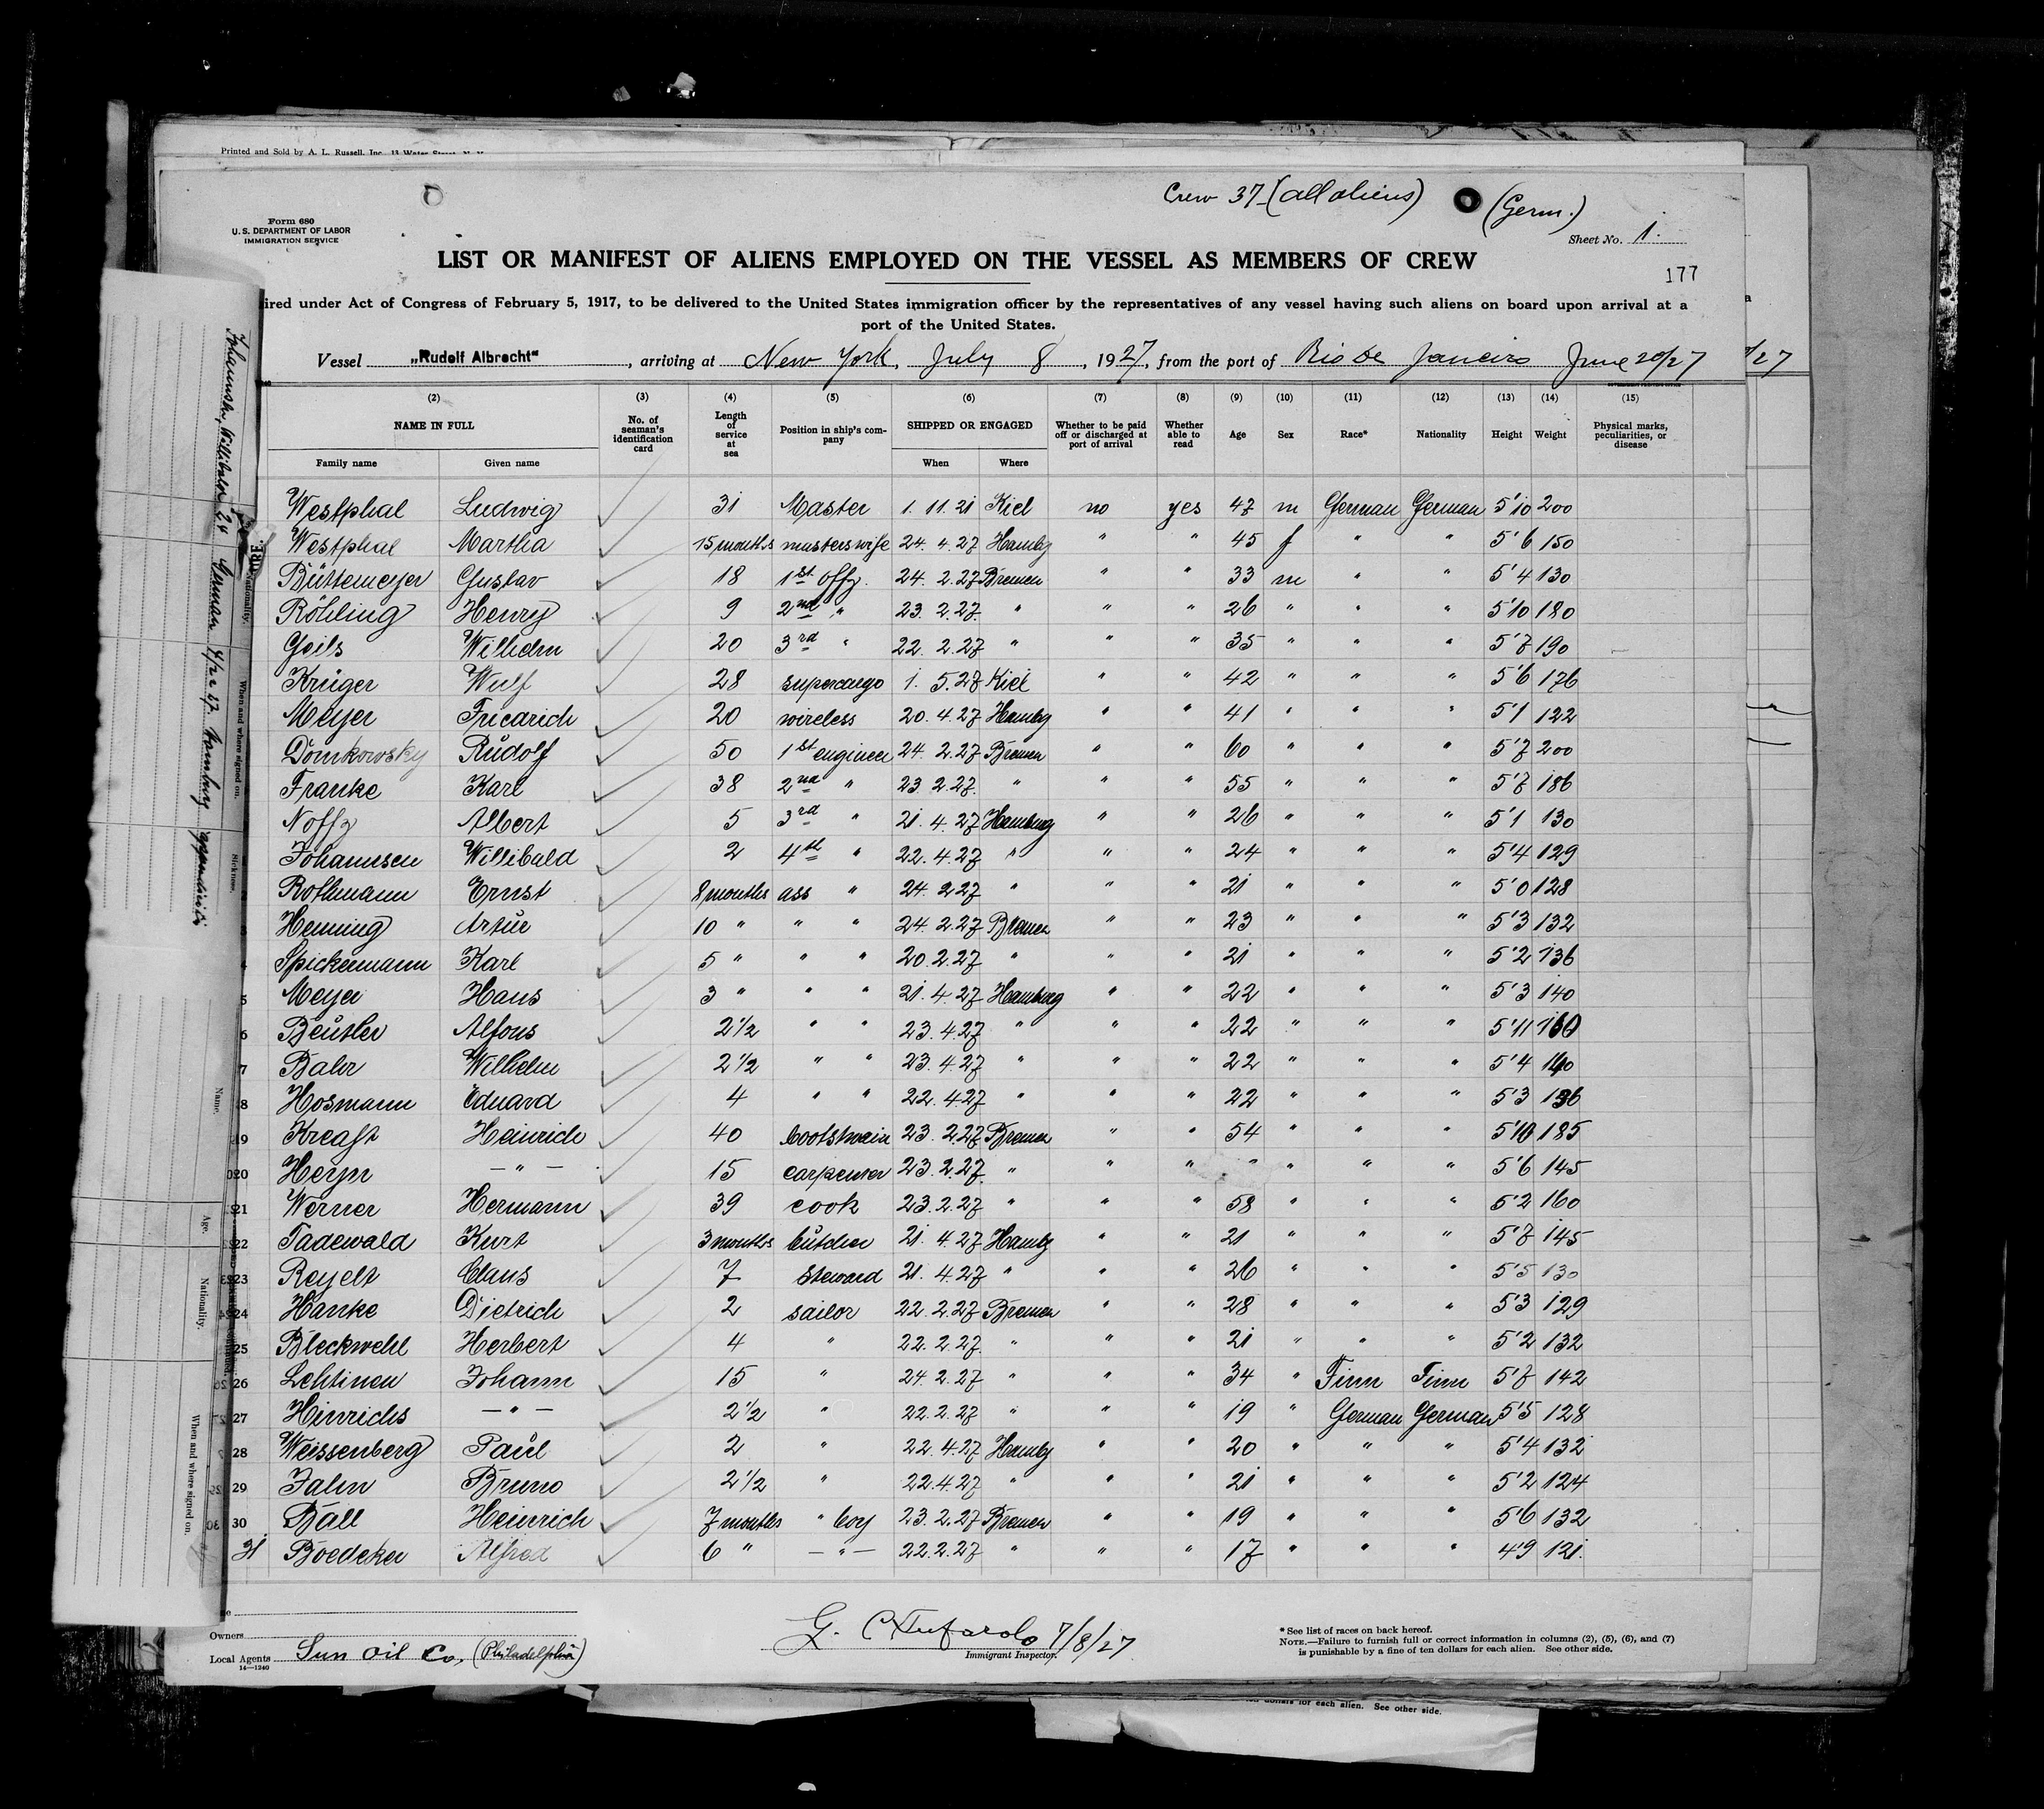 Printed and Sold by A. L. Russell, Inc. 13 Water Street, N. Y.
Crew 37 (all aliens) (Germ.)
Form 680
U. S. DEPARTMENT OF LABOR
IMMIGRATION SERVICE
Sheet No. 1.
LIST OR MANIFEST OF ALIENS EMPLOYED ON THE VESSEL AS MEMBERS OF CREW
177
ired under Act of Congress of February 5, 1917, to be delivered to the United States immigration officer by the representatives of any vessel having such aliens on board upon arrival at a
port of the United States.
Vessel „Rudolf Albrecht“, arriving at New York, July 8, 1927, from the port of Rio De Janeiro June 20/27
(2) (3) (4) (5) (6) (7) (8) (9) (10) (11) (12) (13) (14) (15)
NAME IN FULL No. of seaman's identification card Length of service at sea Position in ship's company SHIPPED OR ENGAGED Whether to be paid off or discharged at port of arrival Whether able to read Age Sex Race* Nationality Height Weight Physical marks, peculiarities, or disease
Family name Given name When Where
Westphal Ludwig 31 Master 1. 11. 21 Kiel no yes 47 m German German 5'10 200
Westphal Martha 15 months masters wife 24. 4. 27 Hambg " " 45 f " " 5'6 150
Büttemeyer Gustav 18 1st offz. 24. 2. 27 Bremen " " 33 m " " 5'4 130
Röhling Henry 9 2nd " 23. 2. 27. " " " 26 " " " 5'10 180
Geils Wilhelm 20 3rd " 22. 2. 27 " " " 35 " " " 5'7 190
Krüger Wulf 28 supercargo 1. 5. 27 Kiel " " 42 " " " 5'6 176
Meyer Friedrich 20 wireless 20. 4. 27 Hambg " " 41 " " " 5'1 122
Domkowsky Rudolf 50 1st engineer 24. 2. 27 Bremen " " 60 " " " 5'7 200
Franke Karl 38 2nd " 23 2. 27. " " " 55 " " " 5'7 186
Noffz Albert 5 3rd " 21. 4. 27 Hamburg " " 26 " " " 5'1 130
Johannsen Willibald 2 4th " 22. 4. 27 " " " 24 " " " 5'4 129
Rothmann Ernst 8 months ass " 24. 2 27 " " " 21 " " " 5'0 128
Henning Artur 10 " " " 24. 2. 27 Bremen " " 23 " " " 5'3 132
Spickermann Karl 5 " " " 20. 2. 27 " " " 21 " " " 5'2 136
Meyer Hans 3 " " " 21. 4. 27 Hamburg " " 22 " " " 5'3 140
Beutler Alfons 2 1/2 " " 23. 4. 27 " " " 22 " " " 5'11 160
Bahr Wilhelm 2 1/2 " " 23. 4. 27 " " " 22 " " " 5'4 140
Hosmann Eduard 4 " " 22. 4. 27 " " " 22 " " " 5'3 136
19 Kreaft Heinrich 40 bootswein 23. 2. 27 Bremen " " 54 " " " 5'10 185
20 Heyn — " — 15 carpenter 23. 2. 27. " " " " " " " 5'6 145
21 Werner Hermann 39 cook 23. 2. 27 " " " 58 " " " 5'2 160
22 Tadewald Kurt 3 months butcher 21. 4. 27 Hambg " " 21 " " " 5'7 145
23 Reyelt Claus 7 steward 21. 4. 27 " " " 26 " " " 5'5 130
24 Hanke Dietrich 2 sailor 22. 2. 27 Bremen " " 28 " " " 5'3 129
25 Bleckwehl Herbert 4 " 22. 2. 27. " " " 21 " " " 5'2 132
26 Lehtinen Johann 15 " 24. 2. 27 " " " 34 " Finn Finn 5'7 142
27 Hinrichs — " — 2 1/2 " 22. 2. 27 " " " 19 " German German 5'5 128
28 Weissenberg Paul 2 " 22. 4. 27 Hambg " " 20 " " " 5'4 132
29 Jahn Bruno 2 1/2 " 22. 4. 27 " " " 21 " " " 5'2 124
30 Ball Heinrich 7 months " boy 23. 2. 27 Bremen " " 19 " " " 5'6 132
31 Boedeker Alfred 6 " — " — 22. 2. 27 " " " 17 " " " 4'9 121.
Owners
Local Agents Sun Oil Co, (Philadelphia)
14—1240
7/8/27
Immigrant Inspector.
* See list of races on back hereof.
NOTE.—Failure to furnish full or correct information in columns (2), (5), (6), and (7)
is punishable by a fine of ten dollars for each alien. See other side.
dollars for each alien. See other side.
Willibald 24 German Hamburg appendicitis
Nationality. When and where signed on. Sickness.
Name. Age. Nationality. When and where signed on.